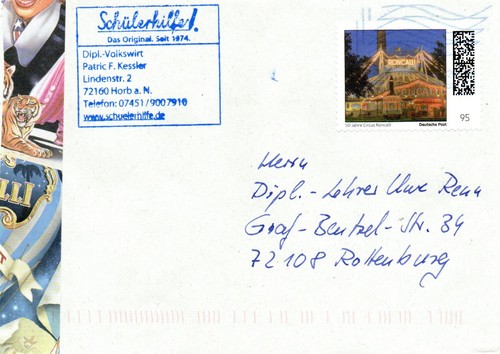 Schülerhilfe!
Das Original. Seit 1974.
Dipl.-Volkswirt
Patric F. Kessler
Lindenstr. 2
72160 Horb a. N.
Telefon: 07451/9007910
www.schuelerhilfe.de
RONCALLI
50 Jahre Circus Roncalli
Deutsche Post
95
Herrn
Dipl.-Lehrer Uwe Renn
Graf-Bentzel-Str. 34
72108 Rottenburg